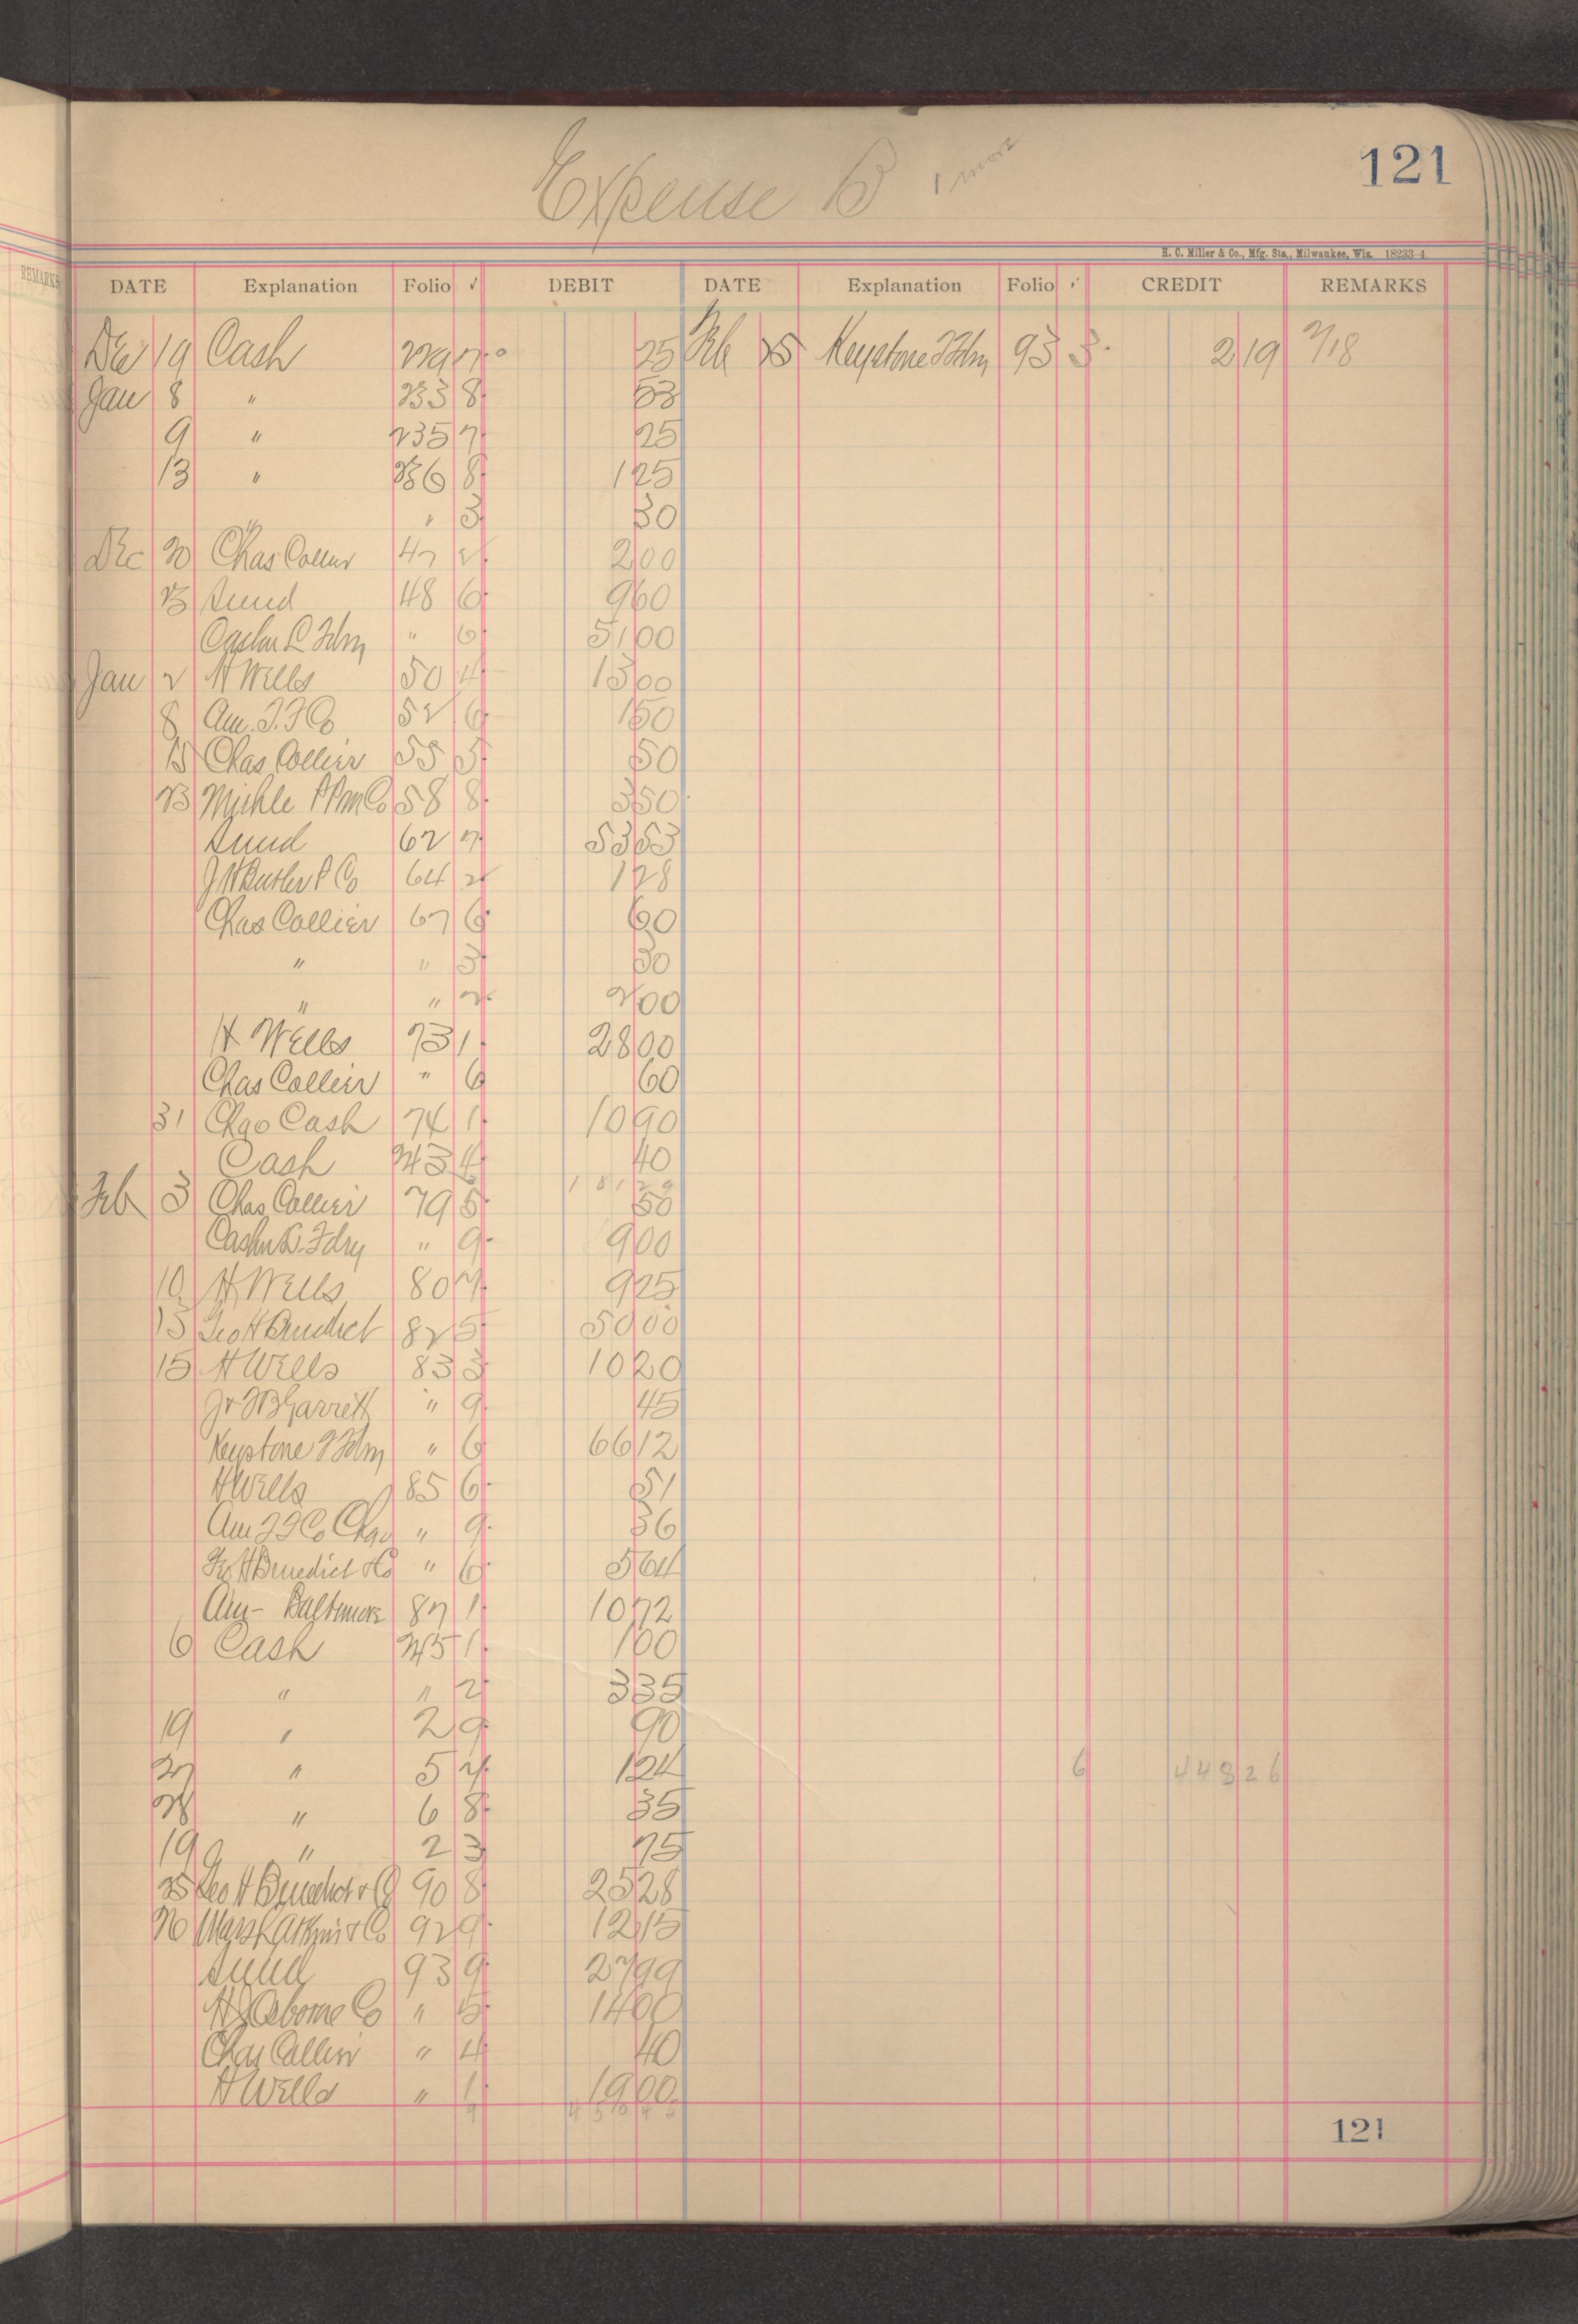 121
Expense B 1 more
H. C. Miller & Co., Mfg. Sta., Milwaukee, Wis. 18233-4
REMARKS
DATE Explanation Folio ✓ DEBIT DATE Explanation Folio ✓ CREDIT REMARKS
Dec 19 Cash 229 7 25 Feb 25 Keystone T Fdry 93 3 2 19 2/18
Jan 8 " 233 8 53
9 " 235 7 25
13 " 236 8 1 25
" " 3 30
Dec 20 Chas Collier 47 2 2 00
23 Sund 48 6 9 60
Caslon L Fdry " 6 51 00
Jan 2 H Wells 50 4 13 00
8 Am. T. F Co 52 6 1 50
15 Chas Collier 55 5 50
23 Miehle P Pm Co 58 8 3 50
Sund 62 7 53 53
J W Butler P Co 64 2 1 28
Chas Collier 67 6 60
" " 3 30
" " 2 2 00
H Wells 73 1 28 00
Chas Collier " 6 60
31 Chgo Cash 74 1 10 90
Cash 243 4 40
1 81 29
Feb 3 Chas Collier 79 5 50
Caslon L. Fdry " 9 9 00
10 H Wells 80 7 9 25
13 Geo H Benedict 82 5 50 00
15 H Wells 83 3 10 20
Jr W B Garrett " 9 45
Keystone T Fdry " 6 66 12
H Wells 85 6 51
Am T F Co Chgo " 9 36
Geo H Benedict & Co " 6 5 64
Am - Baltimore 87 1 10 72
6 Cash 245 1 1 00
" " 2 3 35
19 " 2 9 90
27 " 5 7 1 24 6 448 26
28 " 6 8 35
19 " 2 3 75
25 Geo H Benedict & Co 90 8 25 28
26 Marsh Aikin & Co 92 9 12 15
Sund 93 9 27 99
H Osborne Co " 5 14 00
Chas Collier " 4 40
H Wells " 1 19 00
9
121